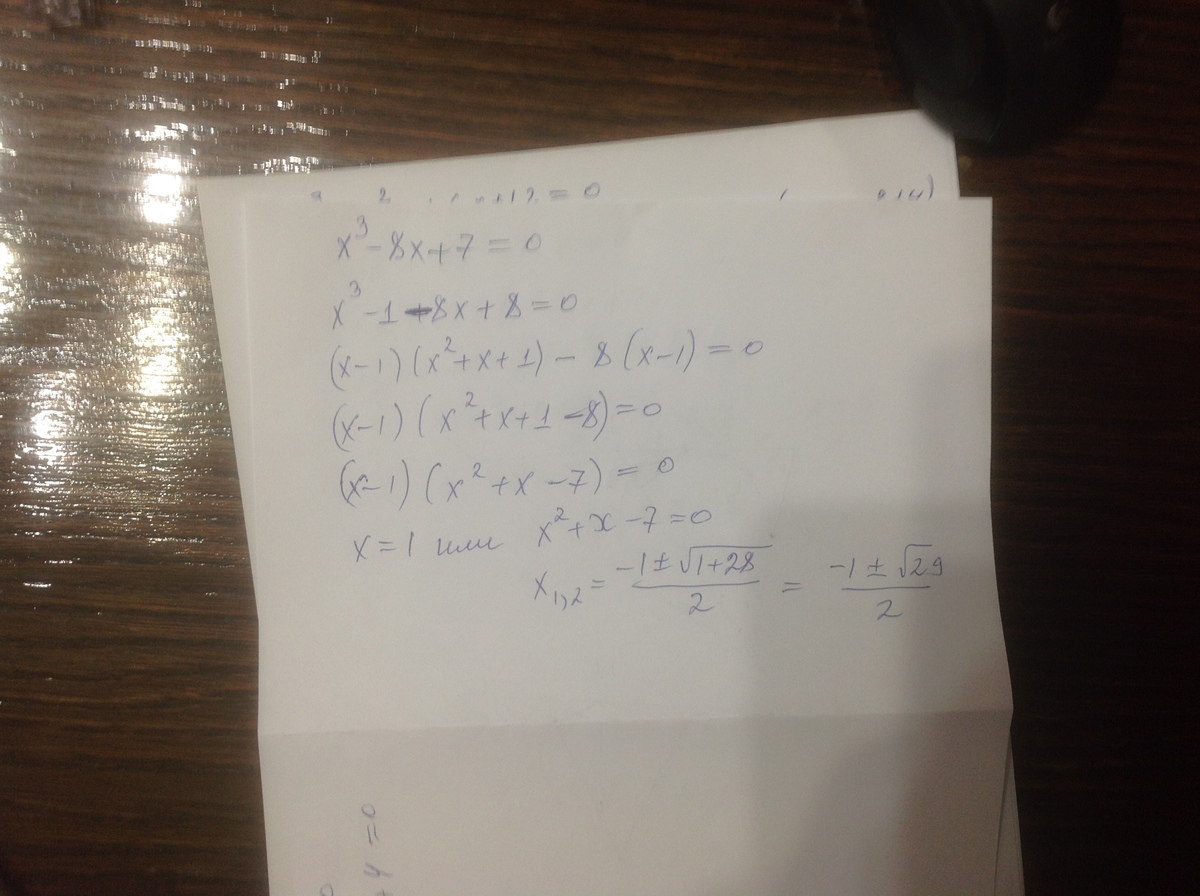 = 0
x³ - 8x + 7 = 0
x³ - 1 - 8x + 8 = 0
(x-1)(x²+x+1) - 8(x-1) = 0
(x-1)(x²+x+1-8) = 0
(x-1)(x²+x-7) = 0
x = 1 или x²+x-7=0
x₁,₂ = (-1±√(1+28))/2 = (-1±√29)/2
+4=0